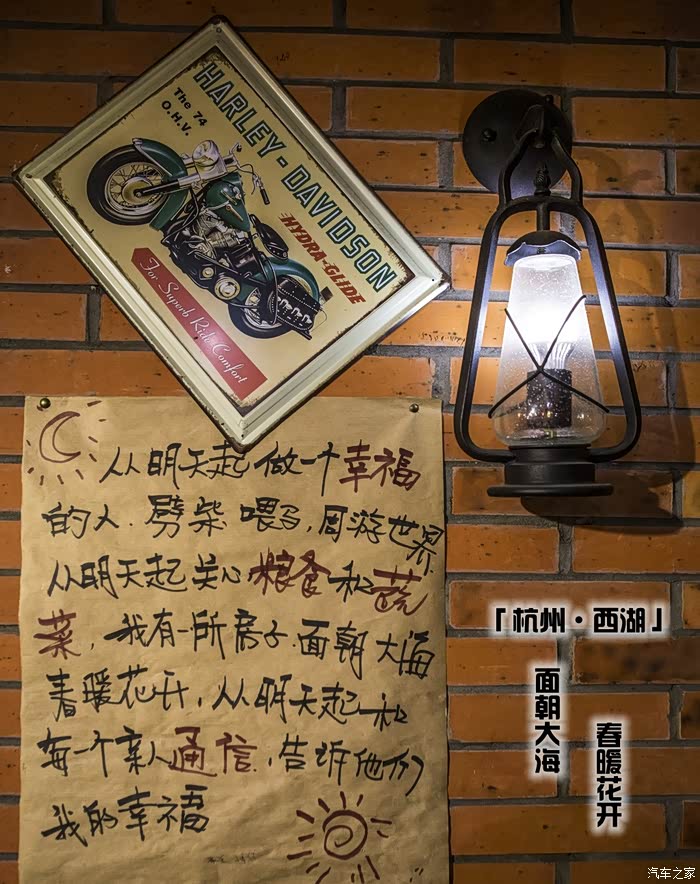 HARLEY-DAVIDSON
The 74
O.H.V.
HYDRA-GLIDE
For Superb Ride Comfort
从明天起做一个幸福
的人.劈柴喂马,周游世界
从明天起关心粮食和蔬
菜,我有一所房子.面朝大海
春暖花开,从明天起和
每一个亲人通信,告诉他们
我的幸福
「杭州·西湖」
面朝大海
春暖花开
汽车之家